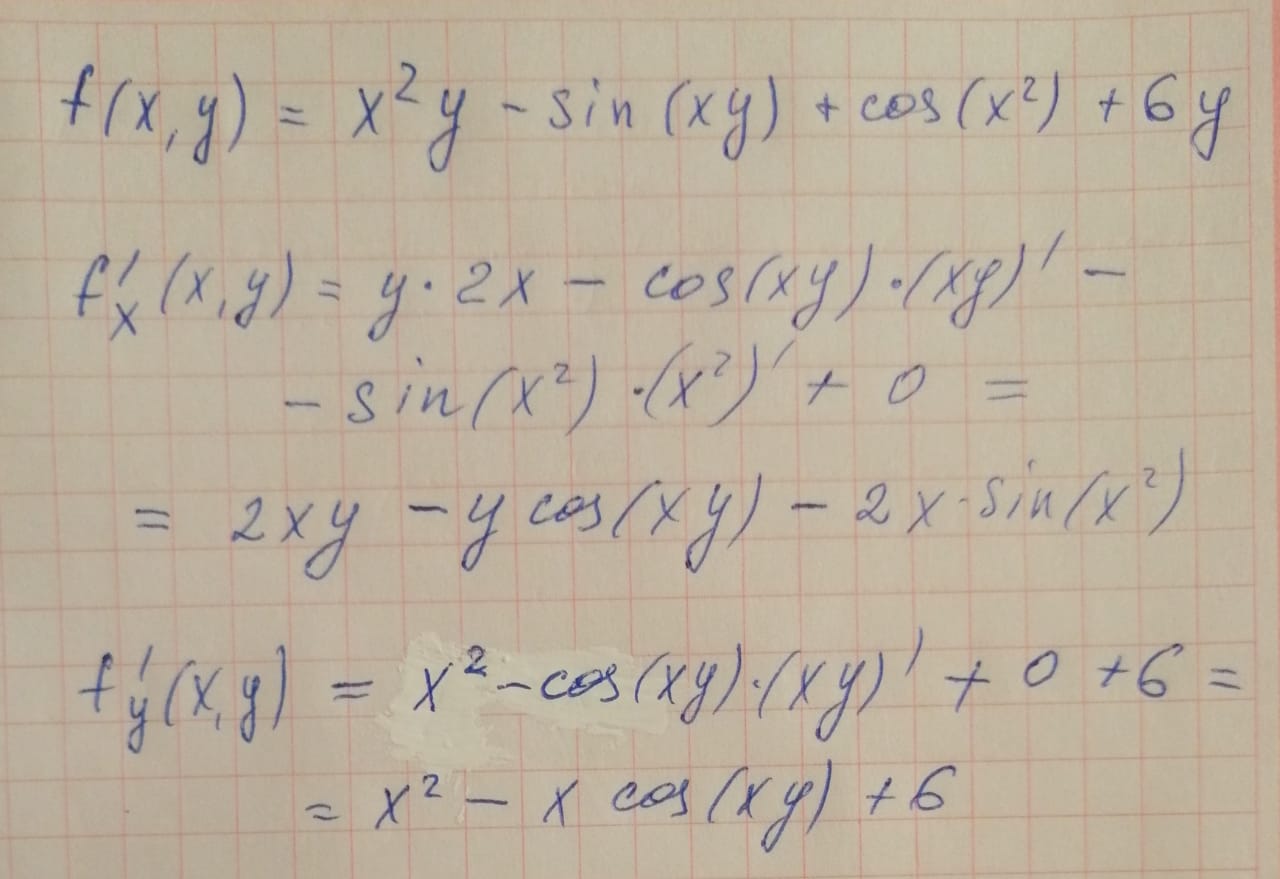 f(x,y) = x²y - sin(xy) + cos(x²) + 6y
f'ₓ(x,y) = y · 2x - cos(xy) · (xy)' -
- sin(x²) · (x²)' + 0 =
= 2xy - y cos(xy) - 2x · sin(x²)
f'_y(x,y) = x² - cos(xy) · (xy)' + 0 + 6 =
= x² - x cos(xy) + 6